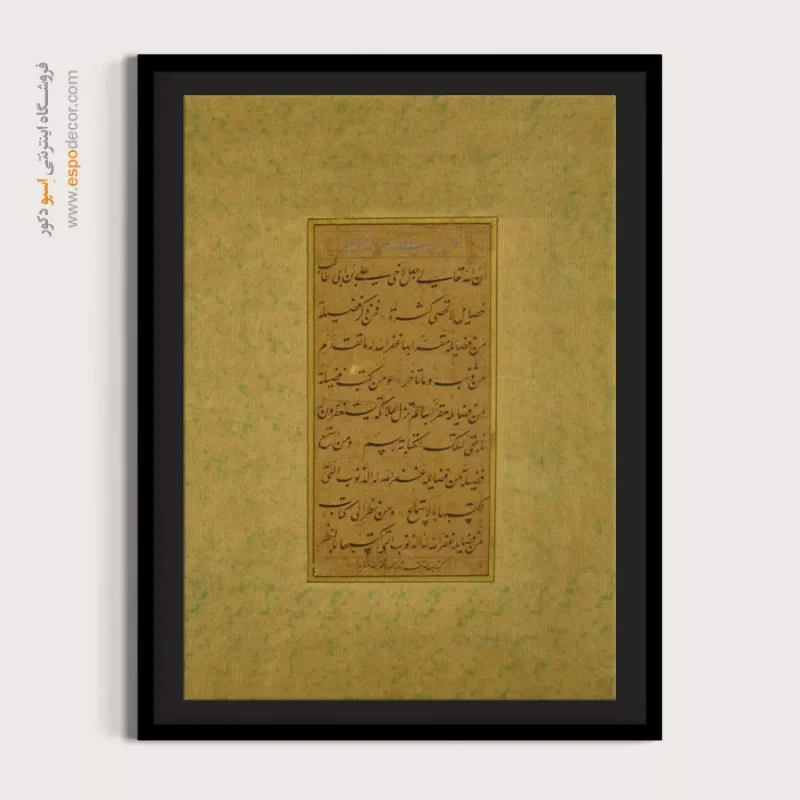 ان الله تعالی جعل لاخی علی بن ابی طالب
فضایل لا تحصی کثرة فمن ذکر فضیلة
من فضایله مقرا بها غفر الله له ما تقدم
من ذنبه و ما تاخر و من کتب فضیلة
من فضایله مقرا بها لم تزل الملائکة یستغفرون
ما بقی لتلک الکتابة رسم و من استمع
فضیلة من فضایله غفر الله له الذنوب التی
اکتسبها بالاستماع و من نظر الی کتاب
من فضایله غفر الله له الذنوب التی اکتسبها بالنظر
فروشگاه اینترنتی اسپو دکور
www.espodecor.com